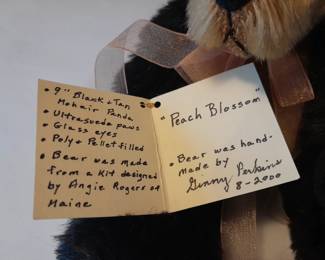 • 9" Black + Tan
Mohair Panda
• Ultrasuede paws
• Glass eyes
• Poly + Pellet filled
• Bear was made
from a kit designed
by Angie Rogers of
Maine
"Peach Blossom"
• Bear was hand-
made by
Ginny Perkins
8-2000